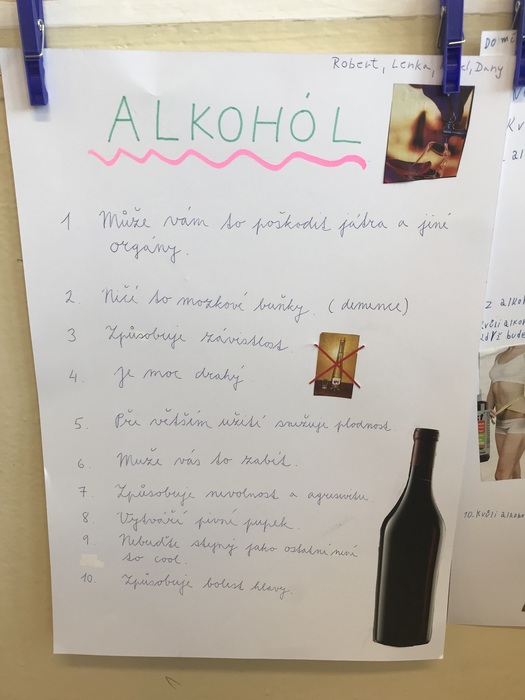 Robert, Lenka, Dany
ALKOHÓL
1 Může vám to poškodit játra a jiné
orgány.
2. Ničí to mozkové buňky. (demence)
3 Způsobuje závistlost
4. Je moc drahý
5. Při větším užití snižuje plodnost
6. Muže vás to zabít.
7. Způsobuje nevolnost a agresivitu
8. Vytváří pivní pupek.
9. Nebuďte stejný jako ostatní není
to cool.
10. Způsobuje bolest hlavy.
Do
z alko
Kvůli alkoh
10. Kvůli alkoho